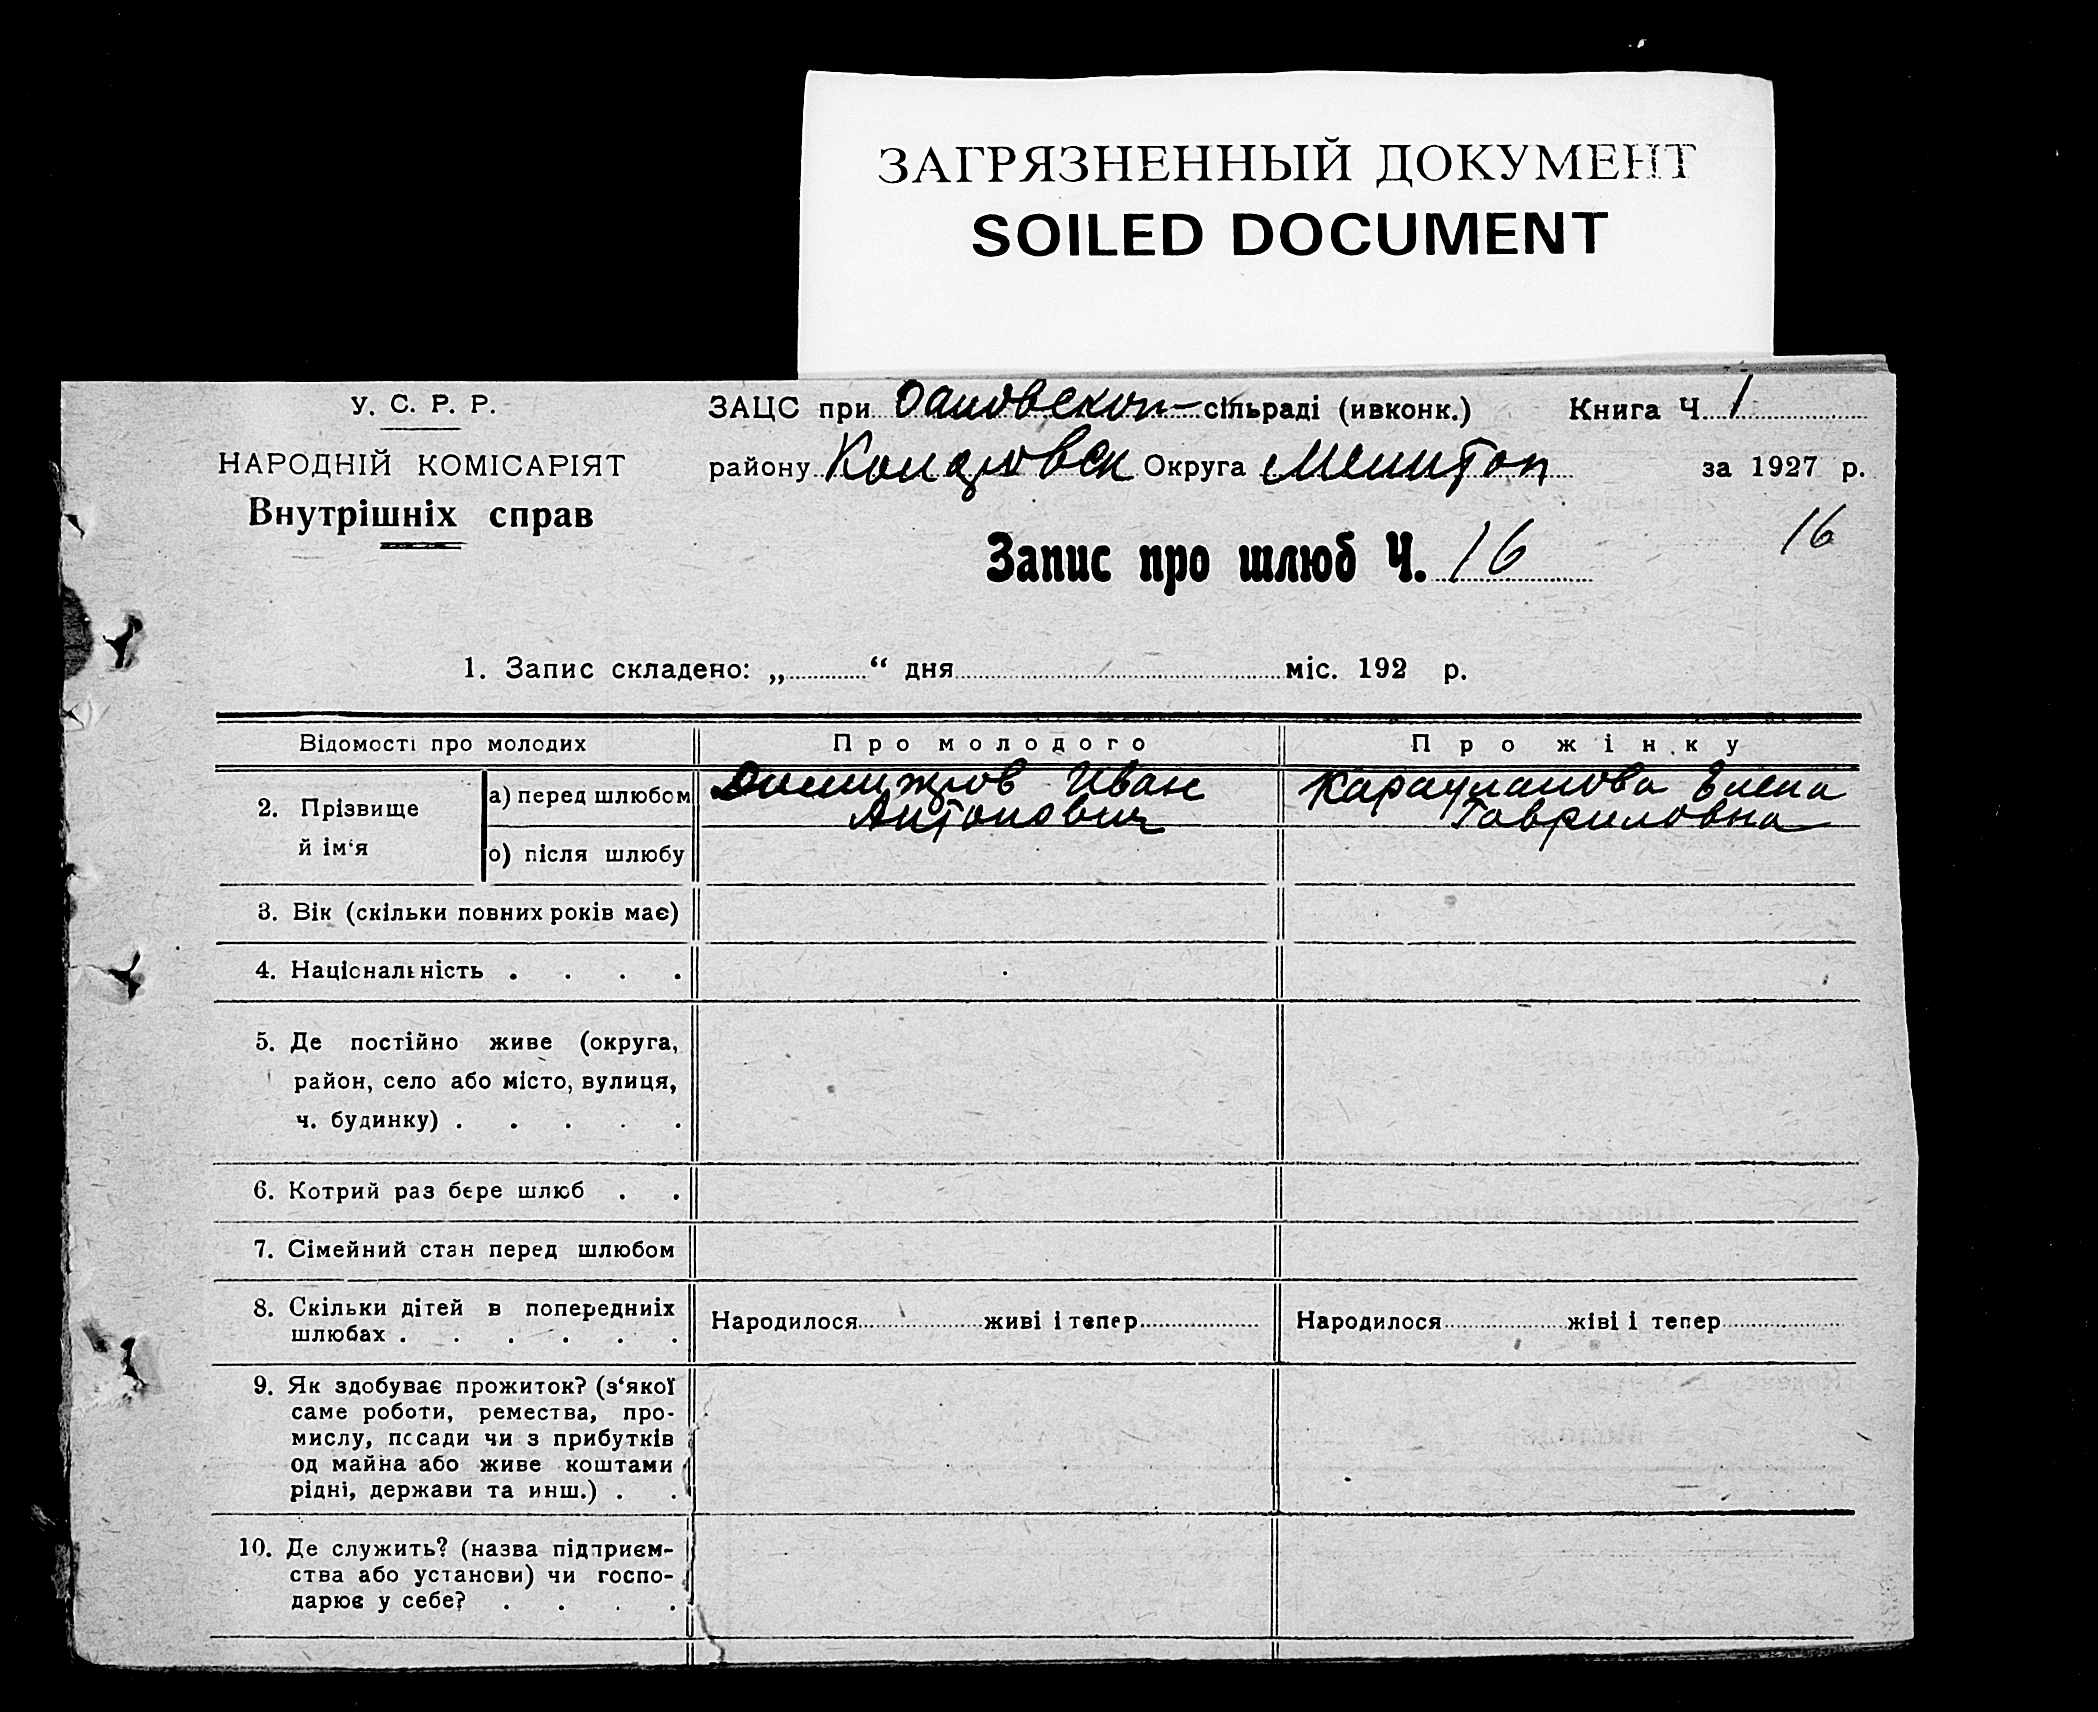 ЗАГРЯЗНЕННЫЙ ДОКУМЕНТ
SOILED DOCUMENT
У. С. Р. Р.
НАРОДНІЙ КОМІСАРІЯТ
Внутрішніх справ
ЗАЦС при сільраді (ивконк.) Книга Ч. 1
району Округа за 1927 р.
16
Запис про шлюб Ч. 16
1. Запис складено: „ “ дня міс. 192 р.
Відомості про молодих Про молодого Про жінку
2. Прізвище й ім‘я
а) перед шлюбом
Иван
Антонович
Караулanова Елена
Гавриловна
о) після шлюбу
3. Вік (скільки повних років має)
4. Національність . . . .
5. Де постійно живе (округа,
район, село або місто, вулиця,
ч. будинку) . . . . .
6. Котрий раз бере шлюб . .
7. Сімейний стан перед шлюбом
8. Скільки дітей в попередниіх
шлюбах . . . . . .
Народилося живі і тепер
Народилося жіві і тепер
9. Як здобуває прожиток? (з‘якої
саме роботи, ремества, про-
мислу, посади чи з прибутків
од майна або живе коштами
рідні, держави та инш.) . .
10. Де служить? (назва підприєм-
ства або установи) чи госпо-
дарює у себе? . . . .